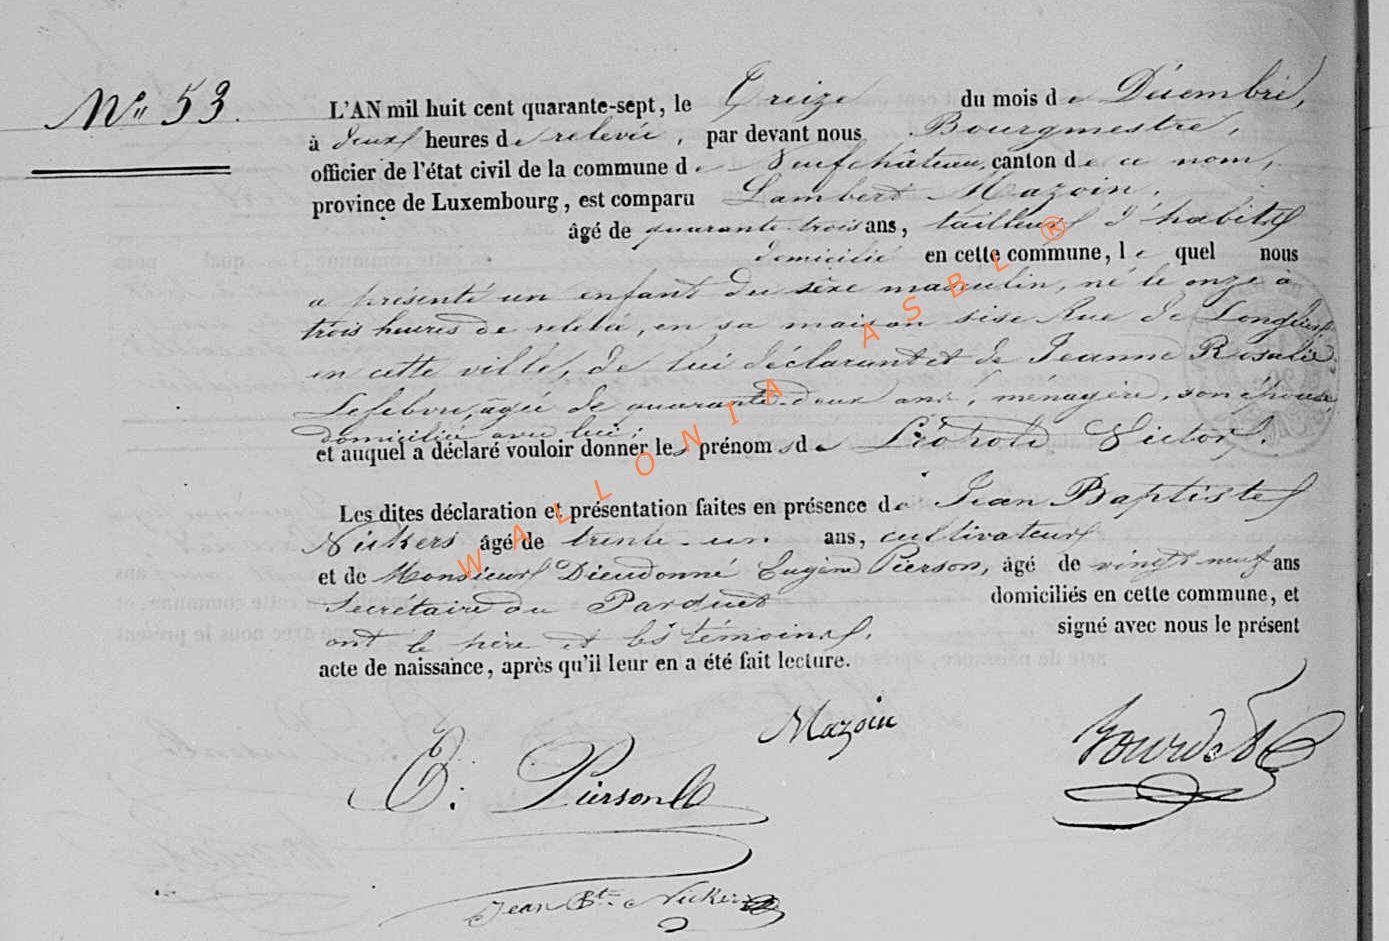 N° 53.
L'AN mil huit cent quarante-sept, le Treize du mois de Décembre,
à deux heures de relevée, par devant nous Bourgmestre,
officier de l'état civil de la commune de Neufchâteau, canton de ce nom,
province de Luxembourg, est comparu Lambert Mazoin,
âgé de quarante trois ans, tailleur d'habits
domicilié en cette commune, lequel nous
a présenté un enfant du sèxe masculin, né le onze à
trois heures de relevée, en sa maison sise Rue de
en cette ville, de lui déclarant et de Jeanne Rosalie
Lefebvre, agée de quarante-deux ans, ménagère, son épouse
domiciliée avec lui;
et auquel a déclaré vouloir donner les prénoms de Léopold Victor.
Les dites déclaration et présentation faites en présence de Jean Baptiste
Nickers âgé de trente-un ans, cultivateur
et de Monsieur Dieudonné Eugène Pierson, âgé de vingt neuf ans
Secrétaire du Parquet domiciliés en cette commune, et
ont le père et les témoins signé avec nous le présent
acte de naissance, après qu'il leur en a été fait lecture.
Mazoin
E. Pierson
Jean Bte Nickers
WALLONIA ASBL ®